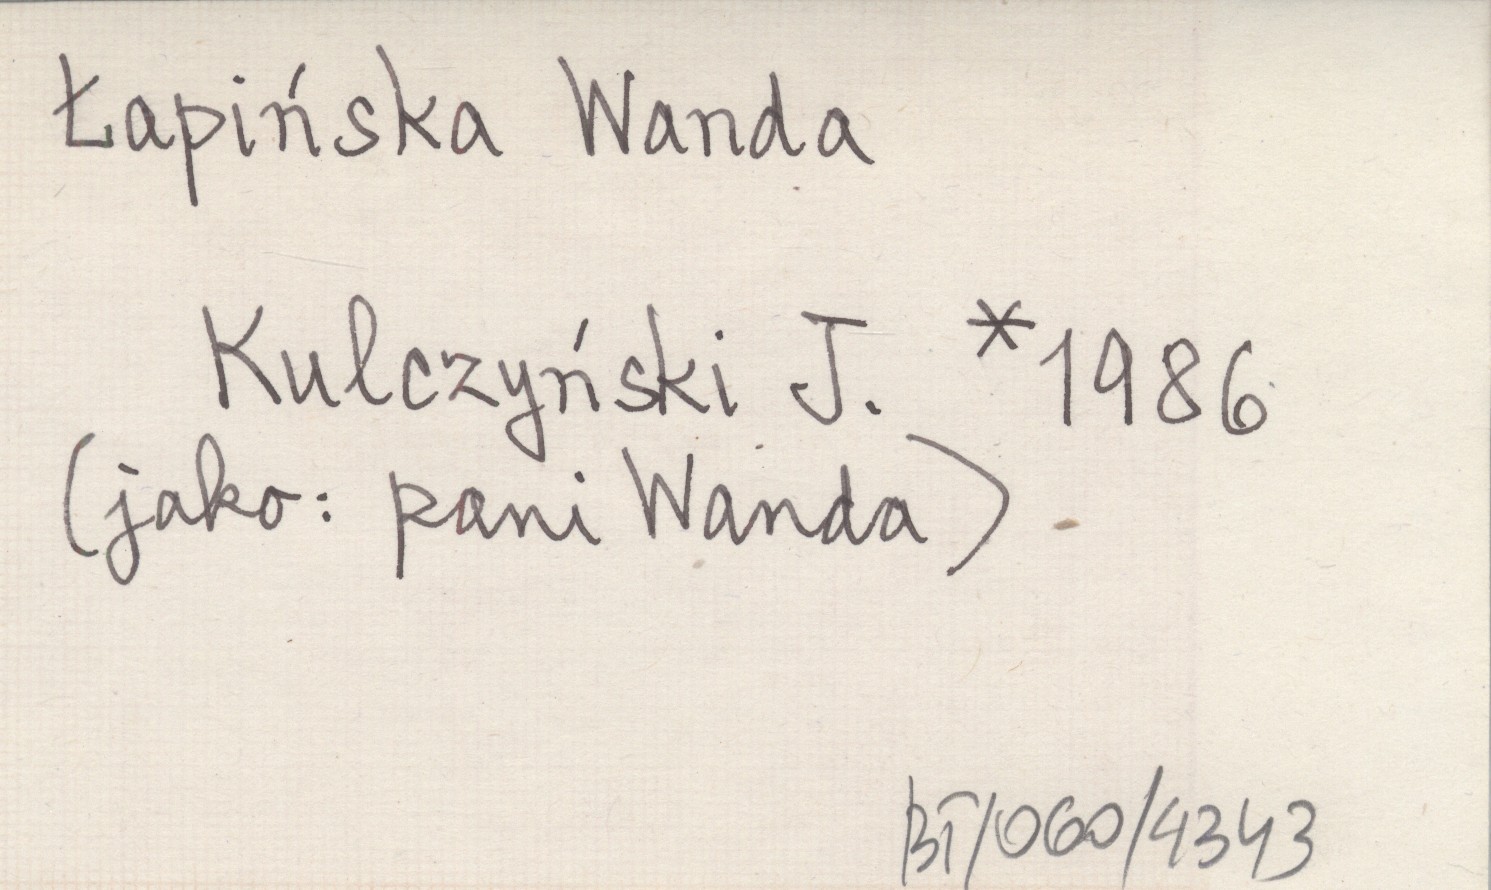 Łapińska Wanda
Kulczyński J. *1986
(jako: pani Wanda)
BT/060/4343